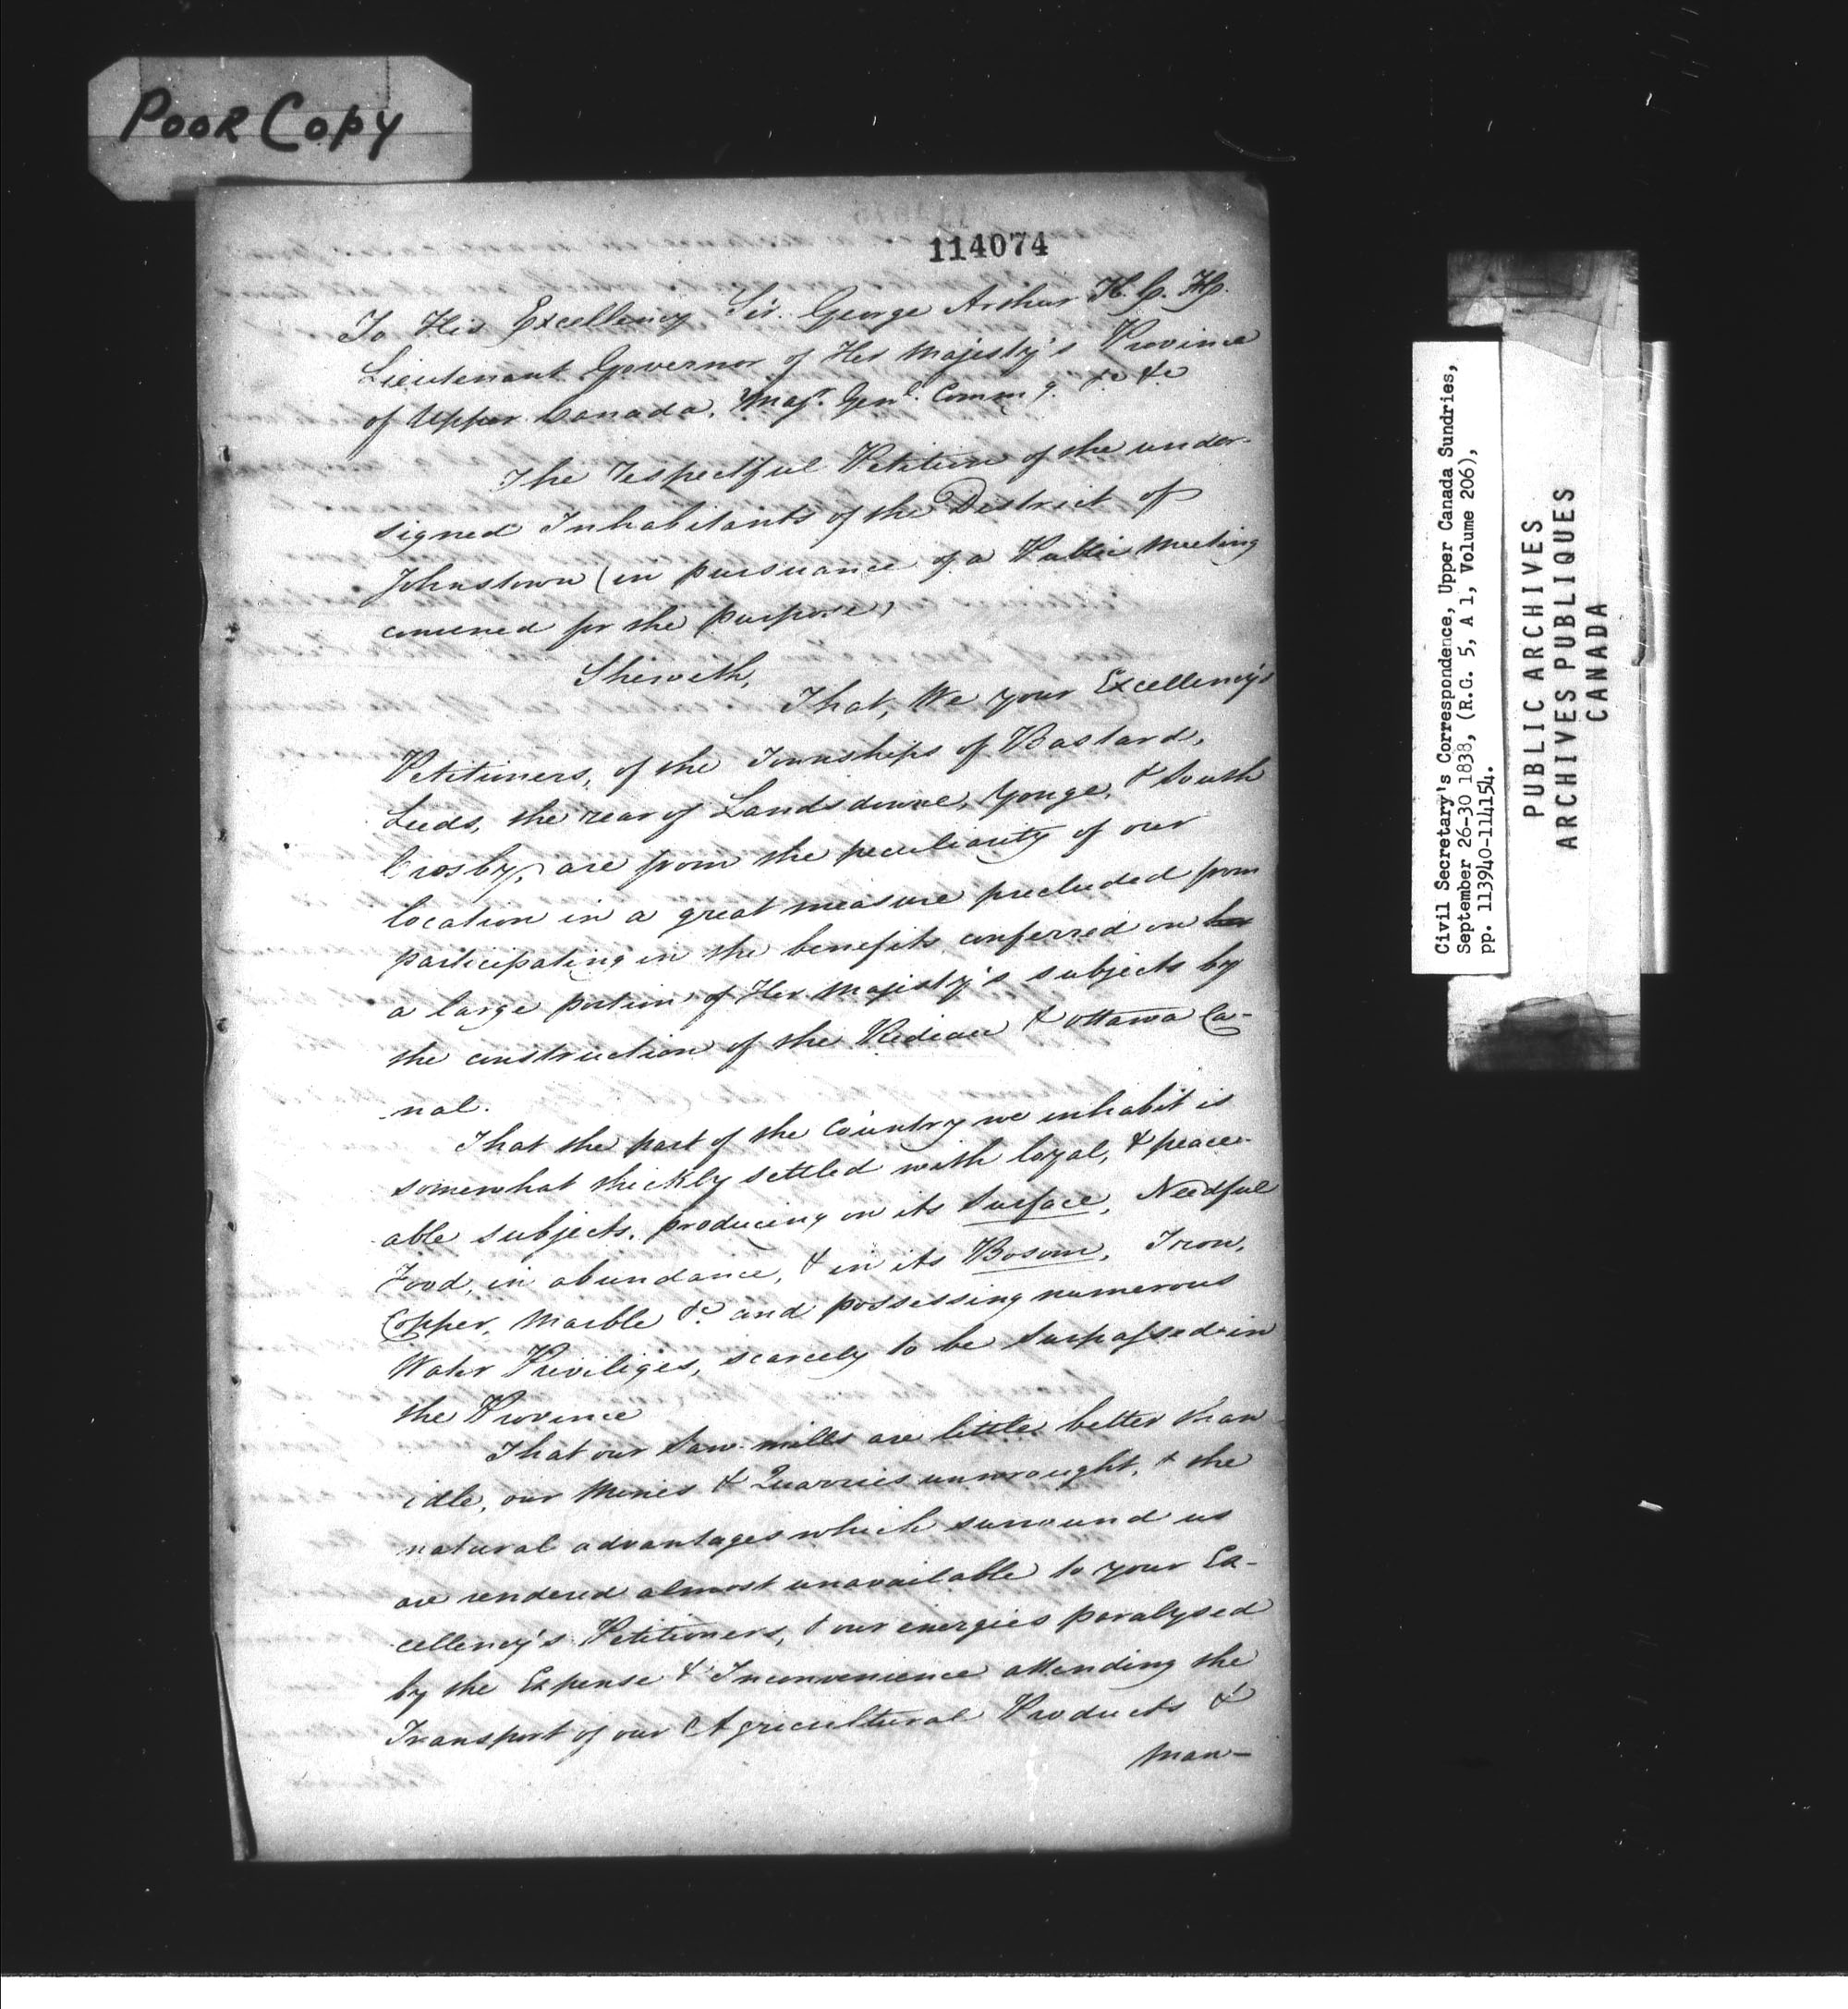 POOR COPY
114074
To His Excellency Sir. George Arthur K. C. H.
Lieutenant Governor of Her Majesty's Province
of Upper Canada, Majr. Genl. Commg. &c &c
The respectful Petition of the under-
signed Inhabitants of the District of
Johnstown (in pursuance of a Public Meeting
convened for the purpose)
Sheweth,
That, We your Excellency's
Petitioners, of the Townships of Bastard,
Leeds, the rear of Landsdowne, Yonge, & South
Crosby, are from the peculiarity of our
location in a great measure precluded from
participating in the benefits conferred on her
a large portion of Her Majesty's subjects by
the construction of the Rideau & Ottawa Ca-
nal.
That the part of the Country we inhabit is
somewhat thickly settled with loyal, & peace-
able subjects, producing on its Surface, Needful
Food, in abundance, & in its Bosom, Iron,
Copper, Marble &c. and possessing numerous
Water Priviliges, scarcely to be Surpassed in
the Province
That our Saw mills are little better than
idle, our Mines & Quarries unwrought, & the
natural advantages which surround us
are rendered almost unavailable to your Ex-
cellency's Petitioners, & our energies paralysed
by the Expense & Inconvenience attending the
Transport of our Agricultural Products &
Man-
Civil Secretary's Correspondence, Upper Canada Sundries,
September 26-30 1838, (R.G. 5, A 1, Volume 206),
pp. 113940-114154.
PUBLIC ARCHIVES
ARCHIVES PUBLIQUES
CANADA